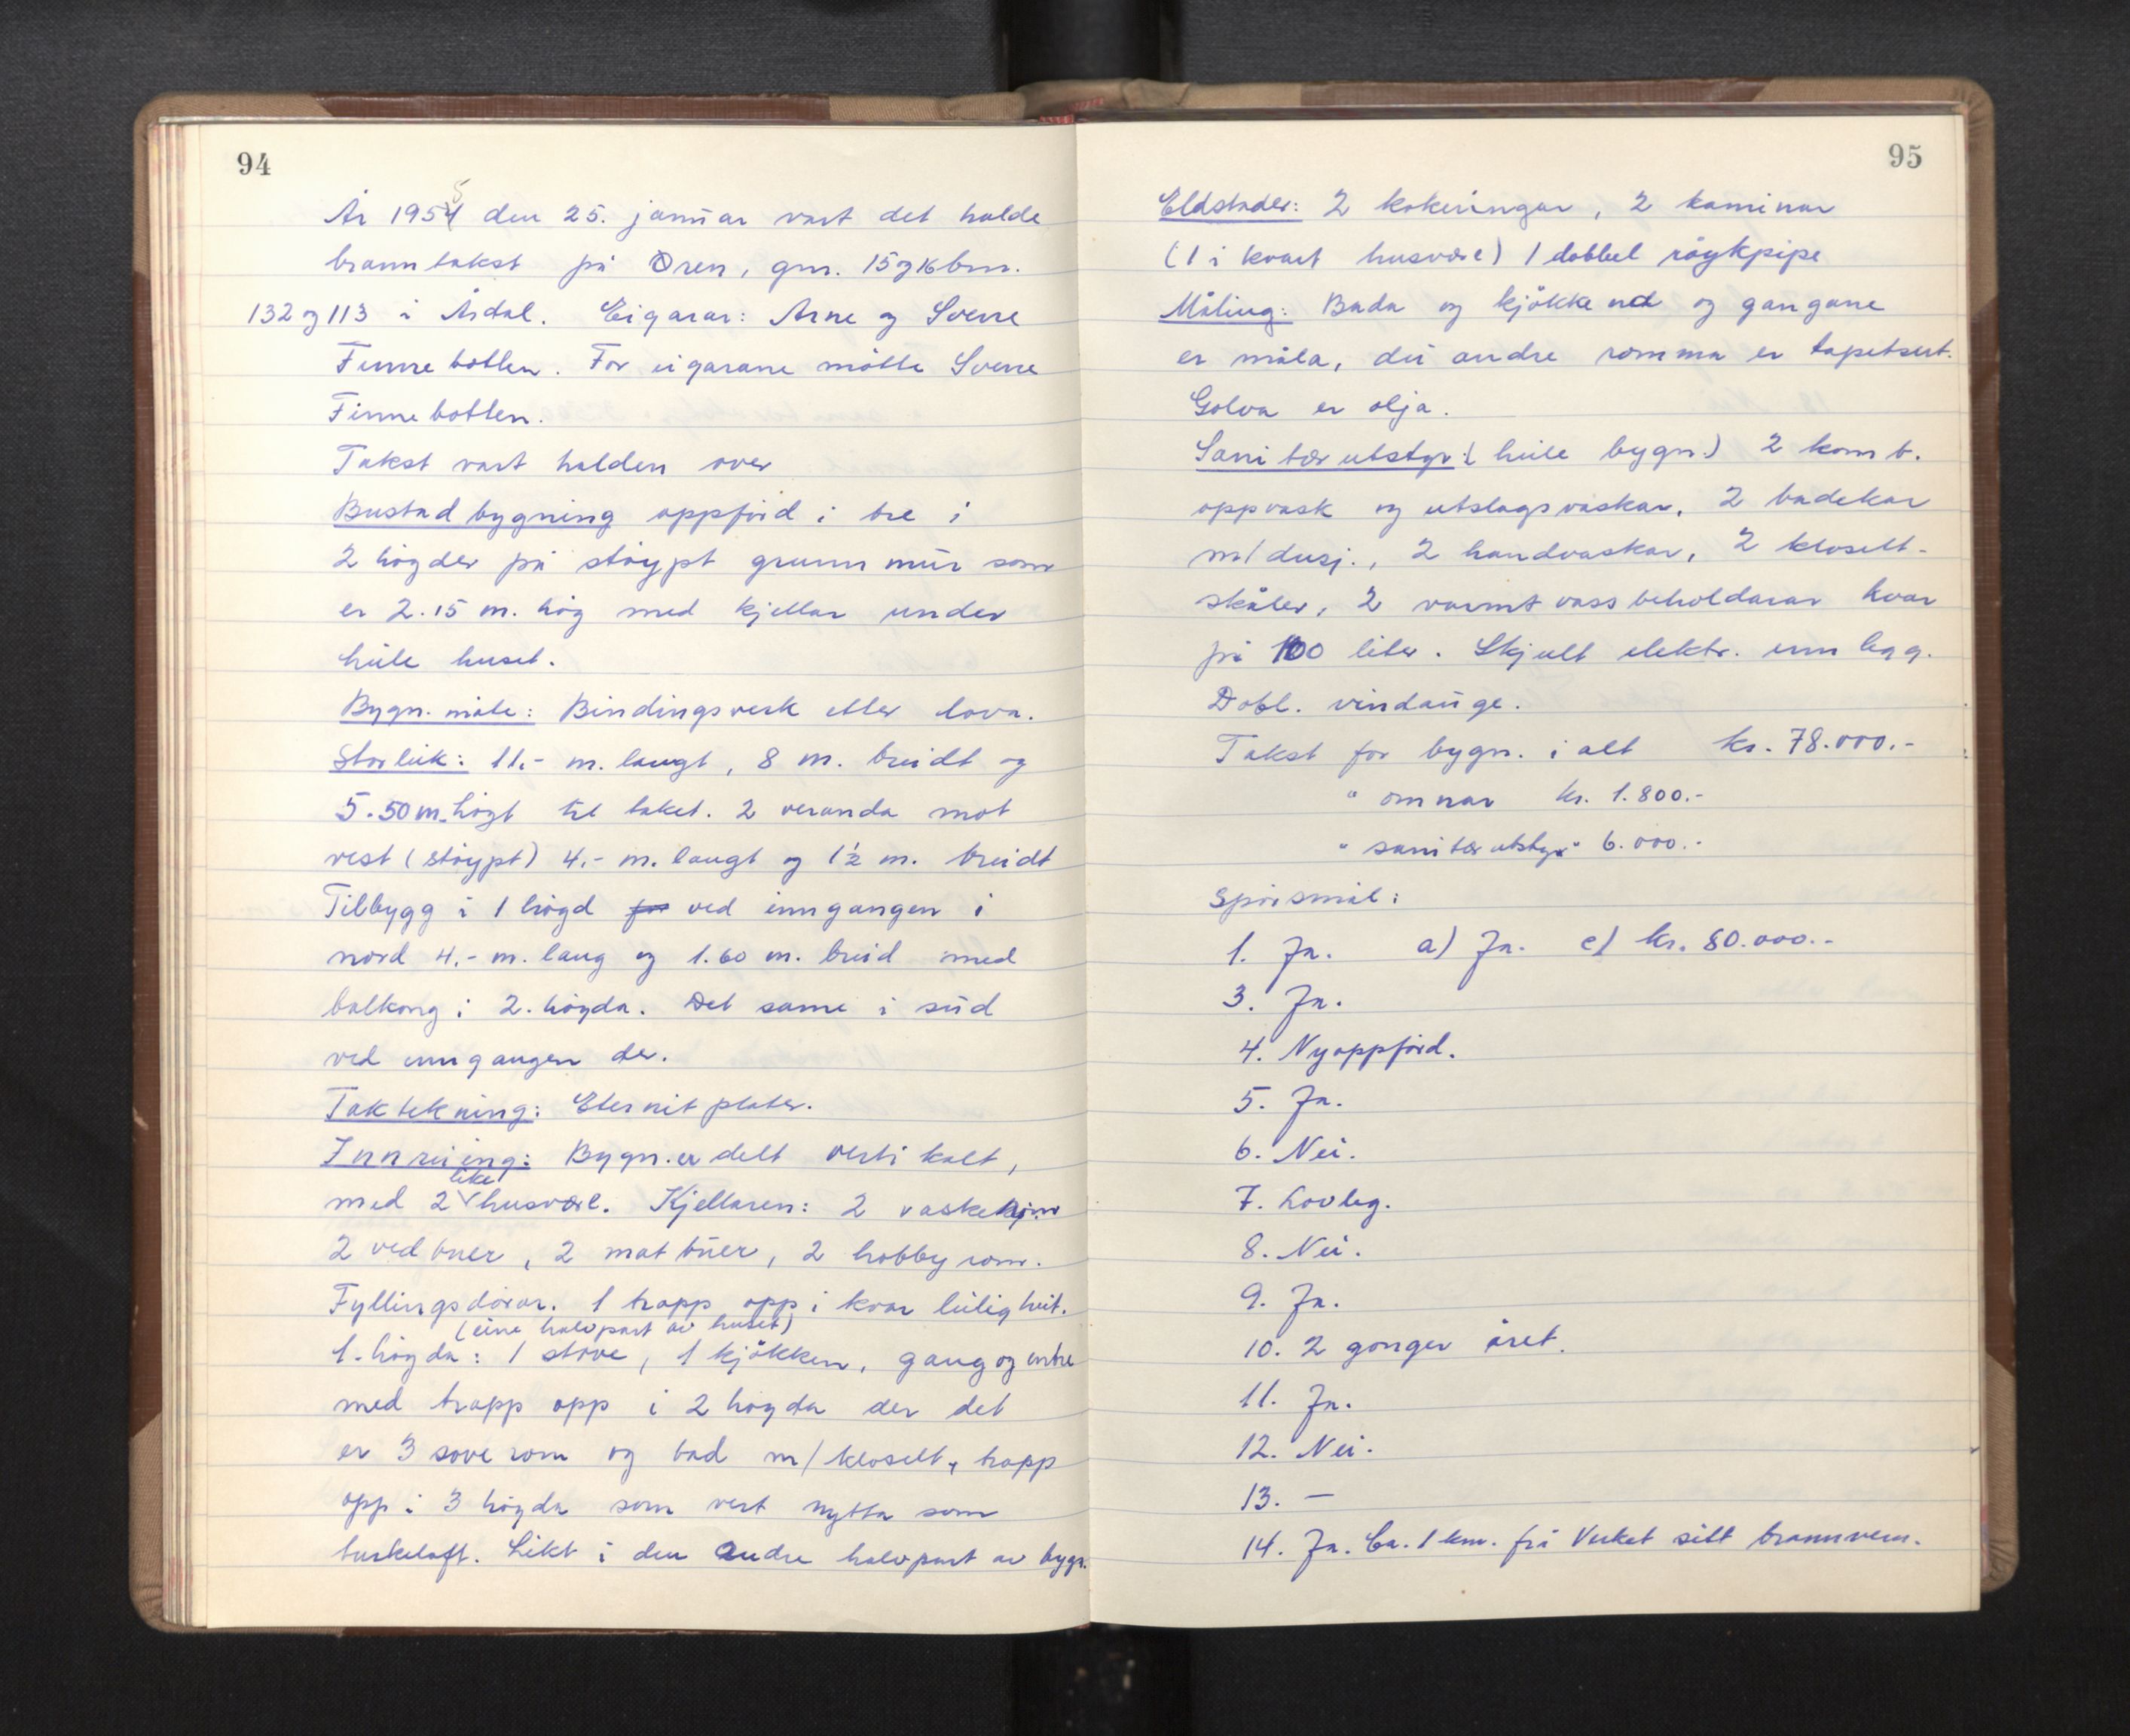 94
År 1954 den 25. januar vart det halde
5
branntakst på Øren, gnr. 15 og 16 bnr.
132 og 113 i Årdal. Eigarar: Arne og Sverre
Finnebotten. For eigarane møtte Sverre
Finnebotten.
Takst vart halden over
Bustadbygning oppförd i tre i
2 högder på stöypt grunnmur som
er 2.15 m. hög med kjellar under
heile huset.
Bygn. måte: Bindingsverk etter lova.
Storleik: 11.- m. langt, 8 m. breidt og
5.50 m. högt til taket. 2 veranda mot
vest (stöypt) 4.- m. langt og 1½ m. breidt
Tilbygg i 1 högd for ved inngangen i
nord 4.- m. lang og 1.60 m. breid med
balkong i 2. högda. Det same i süd
ved inngangen der.
Taktekning: Eternitplater.
Innreiing: Bygn. er delt vertikalt,
like
med 2 husvære. Kjellaren: 2 vaskerom
2 vedbuer, 2 matbuer, 2 hobbyrom.
Fyllingsdörar. 1 trapp opp i kvar leiligheit.
(eine halvpart av huset)
1. högda: 1 stove, 1 kjökken, gang og entre
med trapp opp i 2 högda der det
er 3 soverom og bad m/klosett, trapp
opp i 3 högda som vert nytta som
turkeloft. Likt i den andre halvpart av bygn.
95
Eldstader: 2 kokeringar, 2 kaminar
(1 i kvart husvære) 1 dobbel röykpipe
Måling: Bada og kjökkend og gangane
er måla, dei andre romma er tapetsert.
Golva er olja.
Sanitærutstyr: (heile bygn.) 2 komb.
oppvask og utslagsvaskar, 2 badekar
m/dusj., 2 handvaskar, 2 klosett-
skåler, 2 varmtvassbeholdarar kvar
på 100 liter. Skjult elektr. innlegg.
Dobl. vindauge.
Takst for bygn. i alt kr. 78.000.-
" omnar kr. 1.800.-
" sanitærutstyr " 6.000.-
Spörsmål:
1. Ja. a) Ja. c) kr. 80.000.-
3. Ja.
4. Nyoppförd.
5. Ja.
6. Nei.
7. Lovleg.
8. Nei.
9. Ja.
10. 2 gonger året.
11. Ja.
12. Nei.
13. —
14. Ja. Ca. 1 km. frå Verket sitt brannvern.